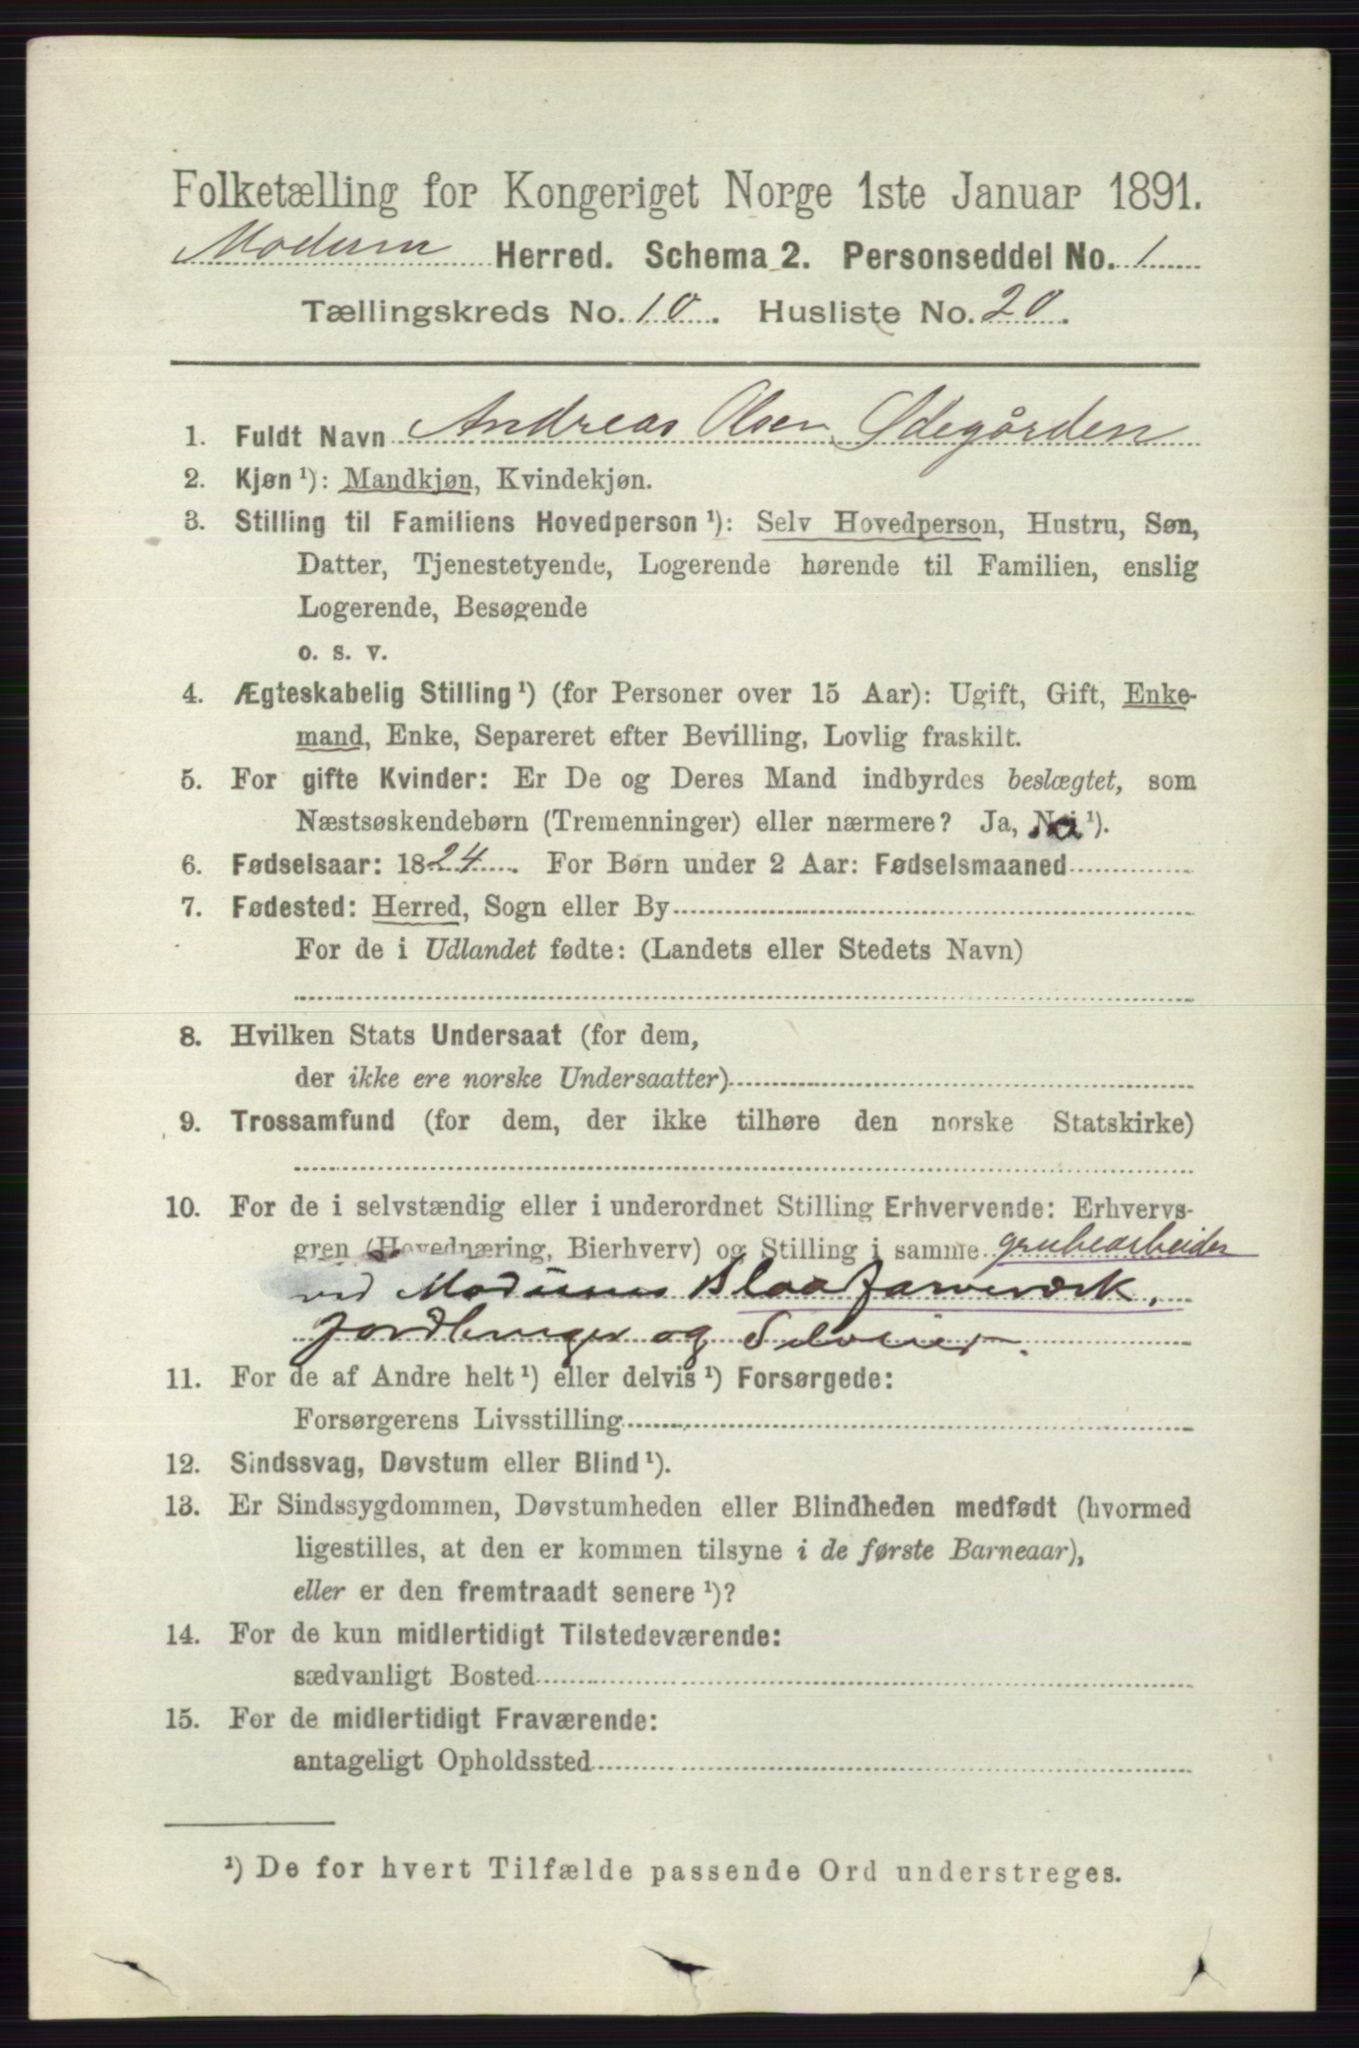 Folketælling for Kongeriget Norge 1ste Januar 1891.
Modum Herred. Schema 2. Personseddel No. 1
Tællingskreds No. 10. Husliste No. 20.
1. Fuldt Navn Andreas Olsen Ødegården
2. Kjøn ¹): Mandkjøn, Kvindekjøn.
3. Stilling til Familiens Hovedperson ¹): Selv Hovedperson, Hustru, Søn,
Datter, Tjenestetyende, Logerende hørende til Familien, enslig
Logerende, Besøgende
o. s. v.
4. Ægteskabelig Stilling ¹) (for Personer over 15 Aar): Ugift, Gift, Enke-
mand, Enke, Separeret efter Bevilling, Lovlig fraskilt.
5. For gifte Kvinder: Er De og Deres Mand indbyrdes beslægtet, som
Næstsøskendebørn (Tremenninger) eller nærmere? Ja, Nei ¹).
6. Fødselsaar: 1824. For Børn under 2 Aar: Fødselsmaaned
7. Fødested: Herred, Sogn eller By
For de i Udlandet fødte: (Landets eller Stedets Navn)
8. Hvilken Stats Undersaat (for dem,
der ikke ere norske Undersaatter)
9. Trossamfund (for dem, der ikke tilhøre den norske Statskirke)
10. For de i selvstændig eller i underordnet Stilling Erhvervende: Erhvervs-
gren (Hovednæring, Bierhverv) og Stilling i samme grubearbeider
ved Modums Blaafarveværk.
Jordbruger og Selveier.
11. For de af Andre helt ¹) eller delvis ¹) Forsørgede:
Forsørgerens Livsstilling
12. Sindssvag, Døvstum eller Blind ¹).
13. Er Sindssygdommen, Døvstumheden eller Blindheden medfødt (hvormed
ligestilles, at den er kommen tilsyne i de første Barneaar),
eller er den fremtraadt senere ¹)?
14. For de kun midlertidigt Tilstedeværende:
sædvanligt Bosted
15. For de midlertidigt Fraværende:
antageligt Opholdssted
¹) De for hvert Tilfælde passende Ord understreges.